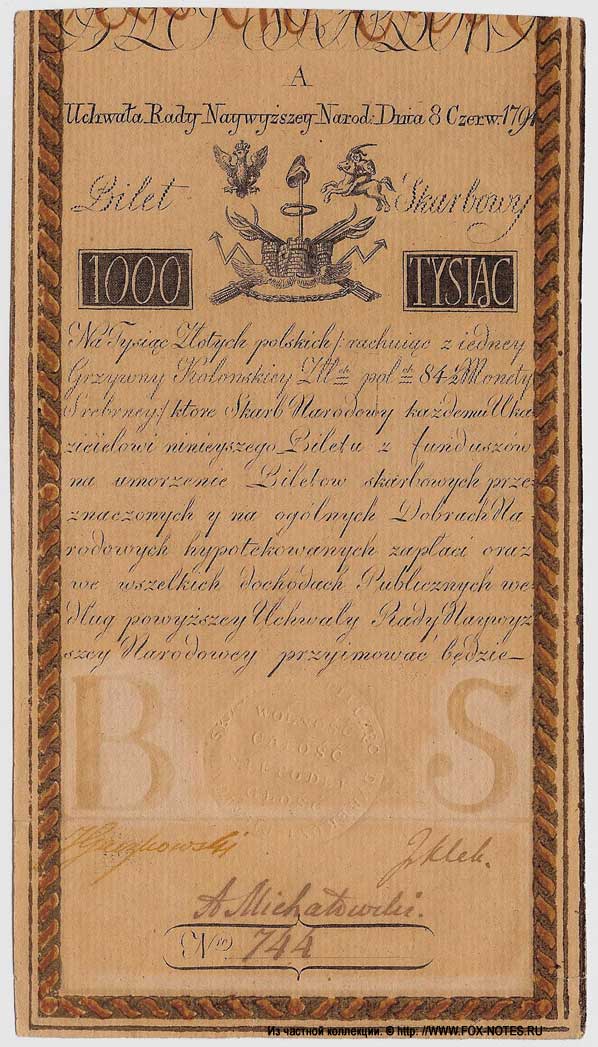 A
Uchwała Rady Naywyższey Narod: Dnia 8 Czerw. 1794
Bilet Skarbowy
1000 TYSIĄC
Na Tysiąc Złotych polskich /: rachuiąc z iedney
Grzywny Kolonskiey Złł ch pol ch 84½ Monety
Srebrney :/ ktore Skarb Narodowy każdemu Uka-
zicielowi ninieyszego Biletu z funduszów
na umorzenie Biletow skarbowych prze-
znaczonych y na ogólnych Dobrach Na-
rodowych hypotekowanych zapłaci oraz
we wszelkich dochodach Publicznych we-
dług powyższey Uchwały Rady Naywyż
szey Narodowey przyimować będzie
B S
WOLNOŚĆ
CAŁOŚĆ
A Michałowski.
J Klek.
N ro 744
Из частной коллекции. © http: //WWW.FOX-NOTES.RU